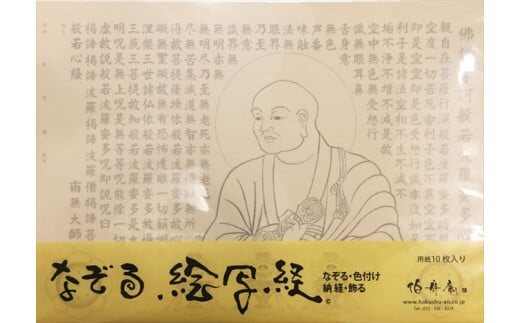 佛説摩訶般若波羅
観自在菩薩行深般若波羅蜜多
空度一切苦厄舎利子色不異空空不
即是空空即是色受想行識亦復如
利子是諸法空相不生不滅
垢不浄不増不減是故
空中無色無受想行
識無眼耳鼻
舌身意
無色
声香
味触
法無
乃至
無意
識界
無無明亦
無明尽乃至無老死亦無老
尽無苦集滅道無智亦無得以無所
得故菩提薩埵依般若波羅蜜多故心
礙無罣礙故無有恐怖遠離一切顛倒
涅槃三世諸仏依般若波羅蜜多故
三藐三菩提故知般若波羅蜜多是大
明呪是無上呪是無等等呪能除一切
虚故説般若波羅蜜多呪即説呪曰
掲諦掲諦波羅掲諦波羅僧掲諦菩
般若心経
南無大師
なぞる、絵写経
なぞる・色付け
納経・飾る
©
用紙10枚入り
www.hukushu-an.co.jp